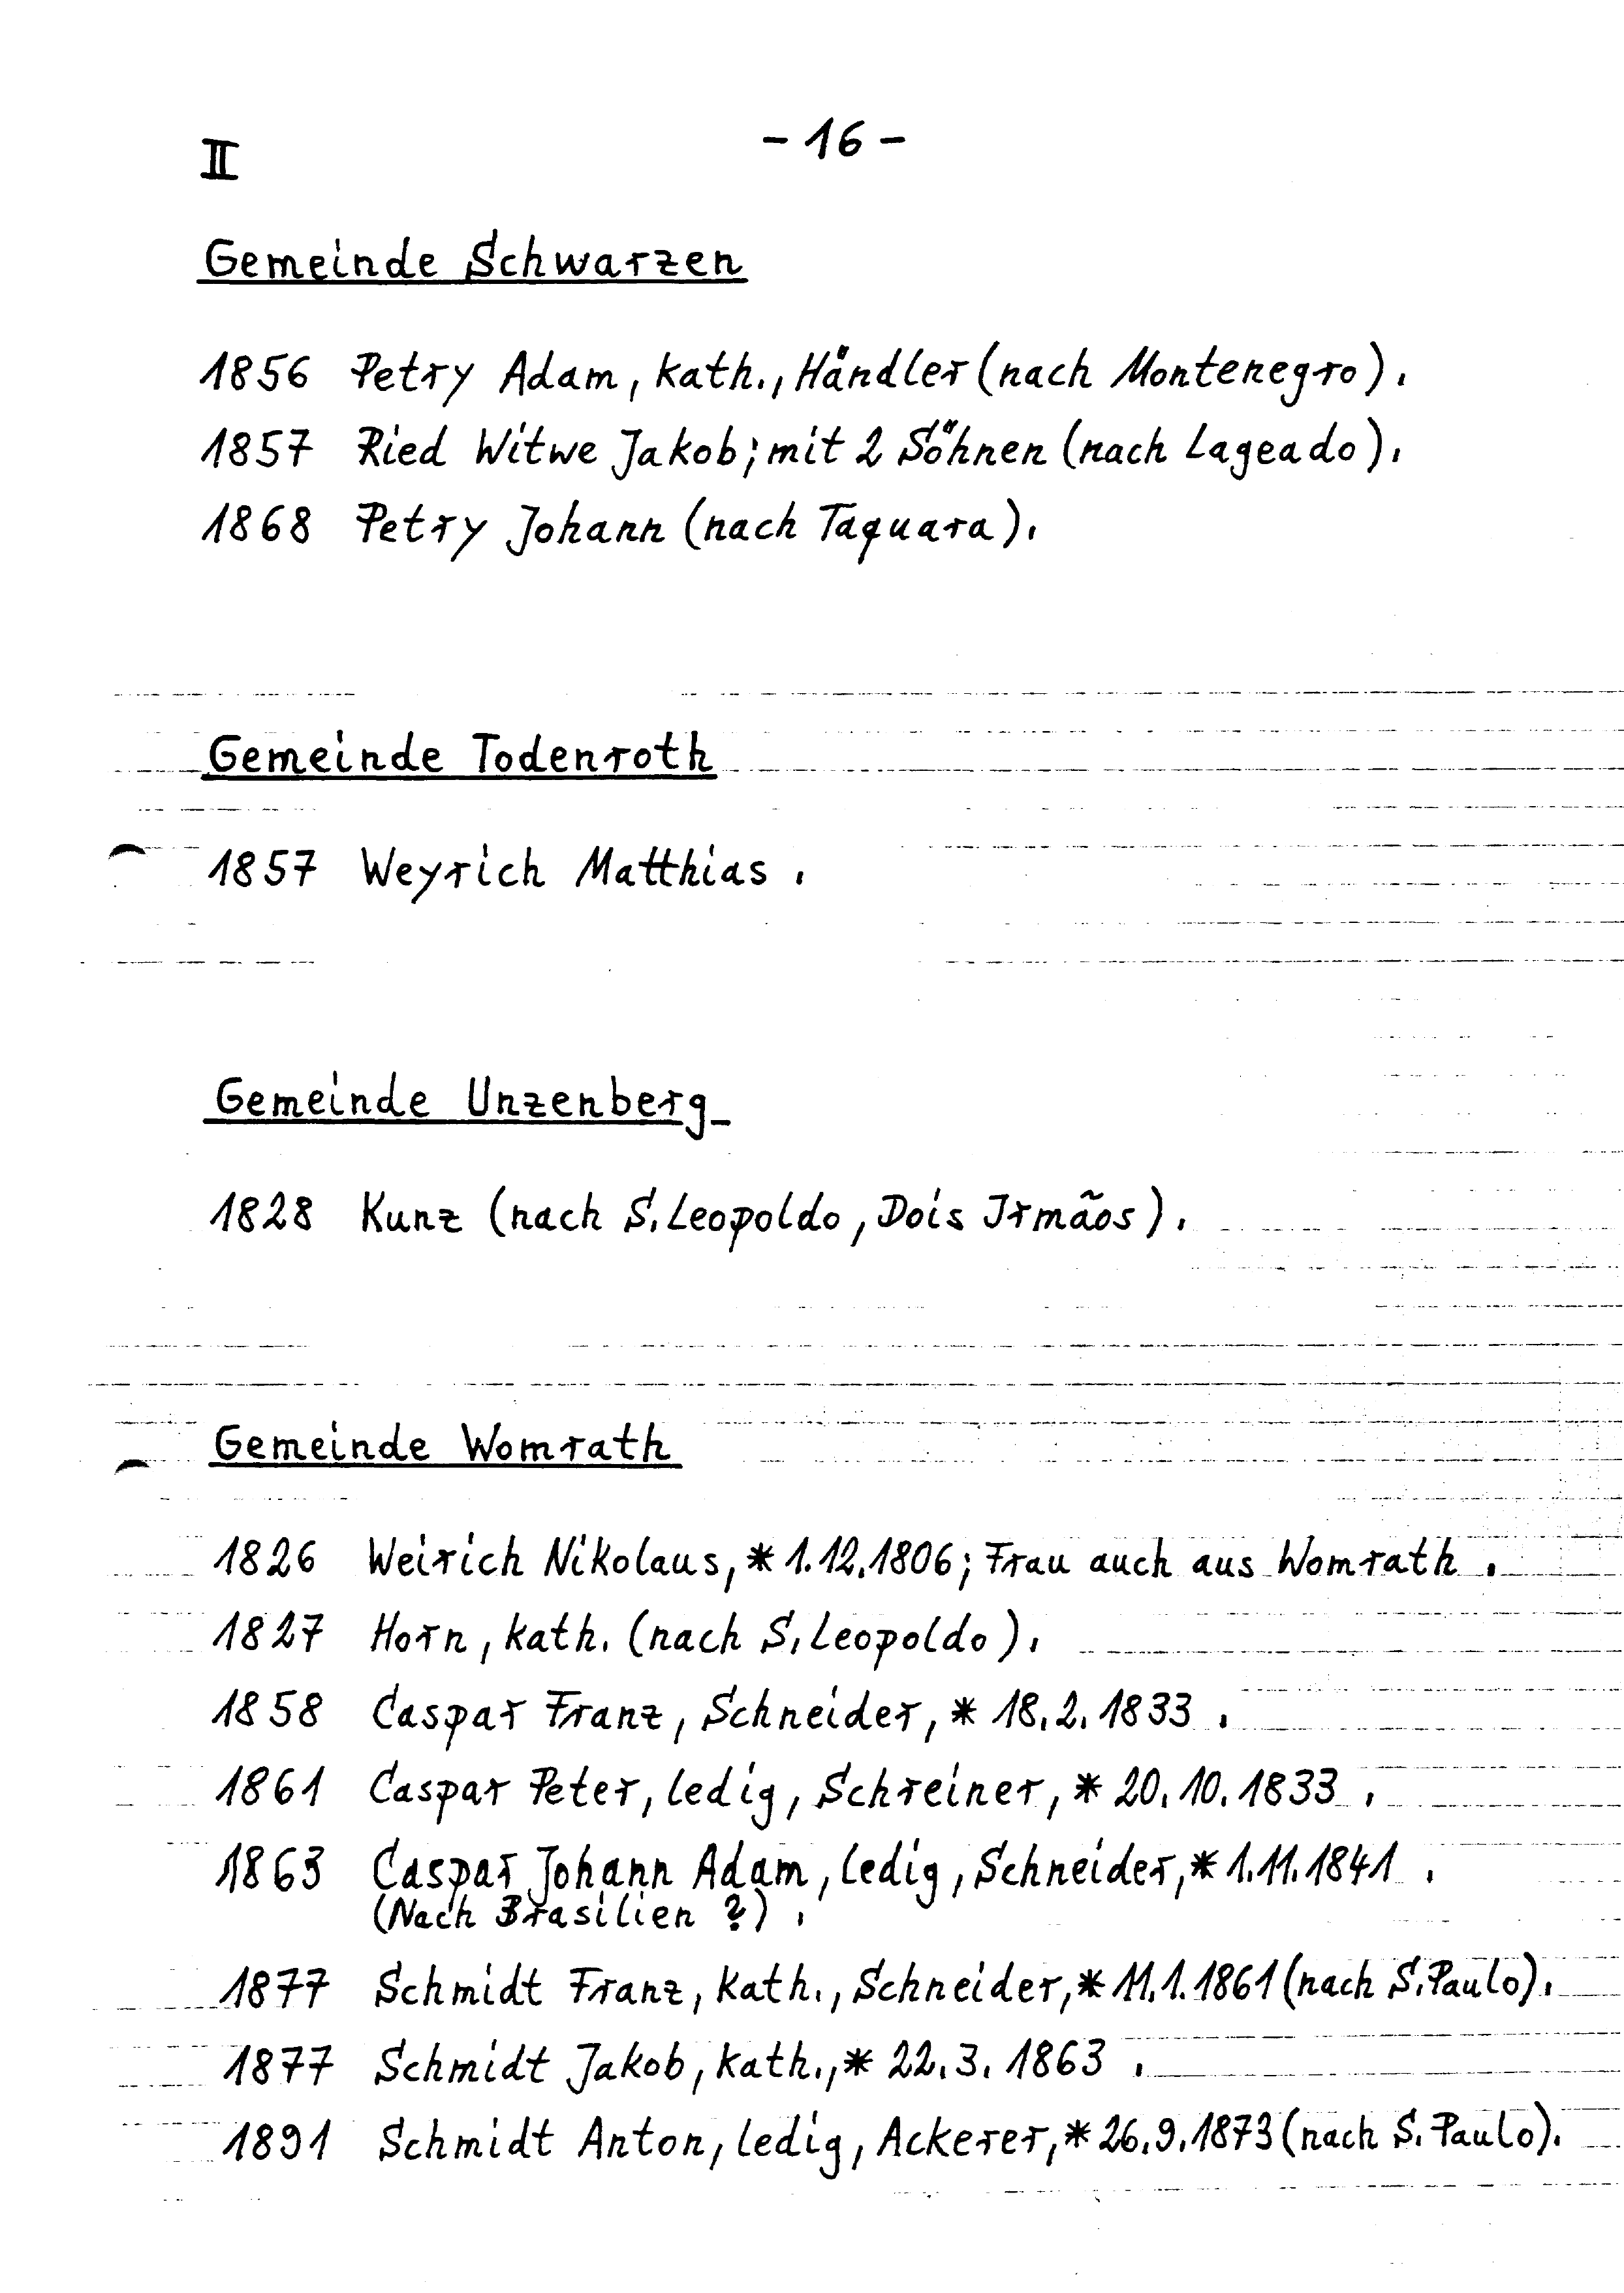 II
- 16 -
Gemeinde Schwarzen
1856 Petry Adam, kath., Händler (nach Montenegro).
1857 Ried Witwe Jakob; mit 2 Söhnen (nach Lageado).
1868 Petry Johann (nach Taquara).
Gemeinde Todenroth
1857 Weyrich Matthias.
Gemeinde Unzenberg
1828 Kunz (nach S. Leopoldo, Dois Irmãos).
Gemeinde Womrath
1826 Weirich Nikolaus, * 1.12.1806; Frau auch aus Womrath.
1827 Horn, kath. (nach S. Leopoldo).
1858 Caspar Franz, Schneider, * 18.2.1833.
1861 Caspar Peter, ledig, Schreiner, * 20.10.1833.
1863 Caspar Johann Adam, ledig, Schneider, * 1.11.1841.
(Nach Brasilien ?).
1877 Schmidt Franz, kath., Schneider, * 11.1.1861 (nach S. Paulo).
1877 Schmidt Jakob, kath., * 22.3.1863.
1891 Schmidt Anton, ledig, Ackerer, * 26.9.1873 (nach S. Paulo).